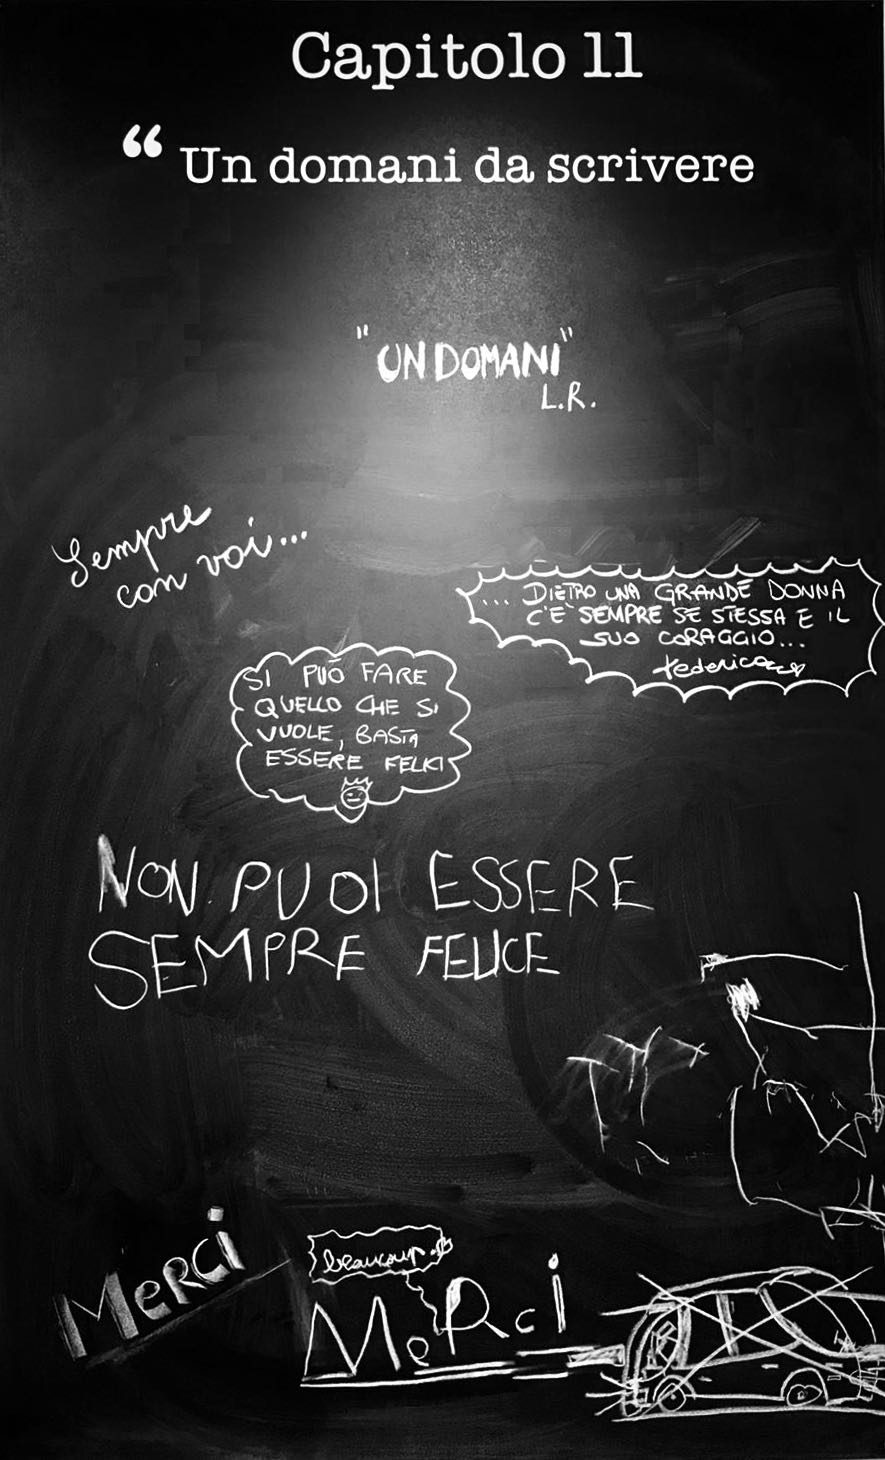 Capitolo 11
“ Un domani da scrivere
"UN DOMANI"
L.R.
Sempre
con voi...
... DIETRO UNA GRANDE DONNA
C'E' SEMPRE SE STESSA E IL
SUO CORAGGIO...
Federica
SI PUÒ FARE
QUELLO CHE SI
VUOLE, BASTA
ESSERE FELICI
NON PUOI ESSERE
SEMPRE FELICE
MeRCi
beaucoup
MeRci